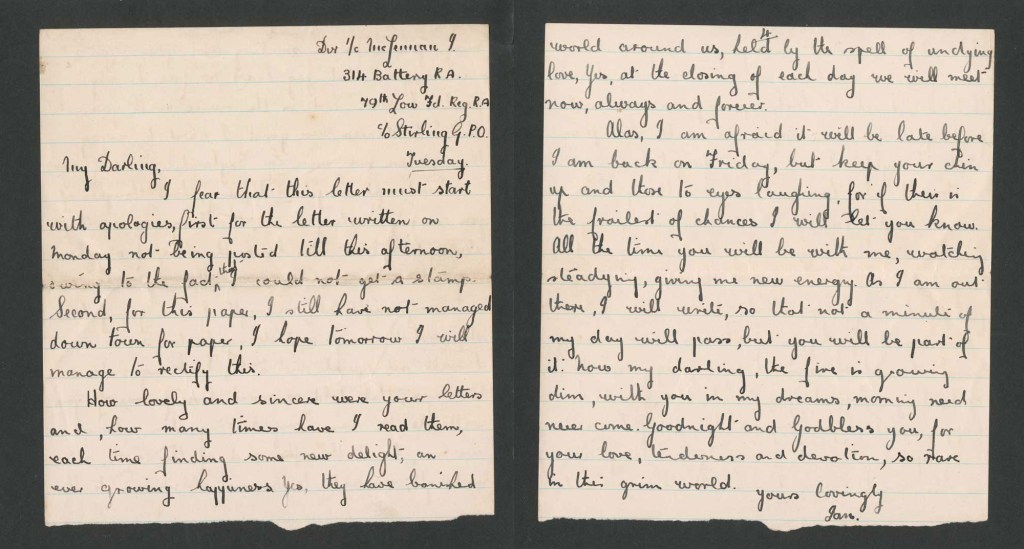 Dvr i/c McLennan I.
314 Battery R.A.
79th Low Fd. Reg. R.A
c/o Stirling G.P.O.
Tuesday.
My Darling,
I fear that this letter must start
with apologies, first for the letter written on
Monday not being posted till this afternoon,
owing to the fact, that I could not get a stamp.
Second, for this paper, I still have not managed
down town for paper, I hope tomorrow I will
manage to rectify this.
How lovely and sincere were your letters
and, how many times have I read them,
each time finding some new delight, an
ever growing happiness Yes, they have banished
4
world around us, held by the spell of undying
love, Yes, at the closing of each day we will meet
now, always and forever.
Alas, I am afraid it will be late before
I am back on Friday, but keep your chin
up and those to eyes laughing, for if their is
the frailest of chances I will let you know.
All the time you will be with me, watching
steadying, giving me new energy. As I am out
there, I will write, so that not a minute of
my day will pass, but you will be part of
it. Now my darling, the fire is growing
dim, with you in my dreams, morning need
never come. Goodnight and Godbless you, for
your love, tenderness and devotion, so rare
in this grim world.
yours lovingly
Ian.